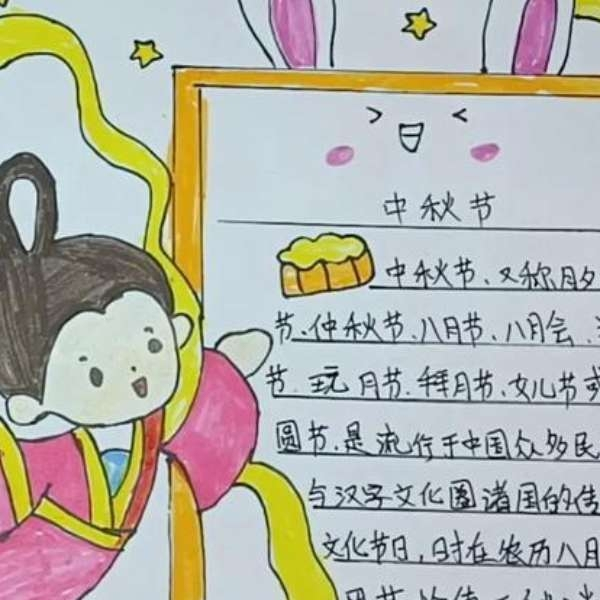 中秋节
中秋节、又称月夕
节、仲秋节、八月节、八月会、
节、玩月节、拜月节、女儿节或
圆节、是流行于中国众多民
与汉字文化圈诸国的传
文化节日，时在农历八月